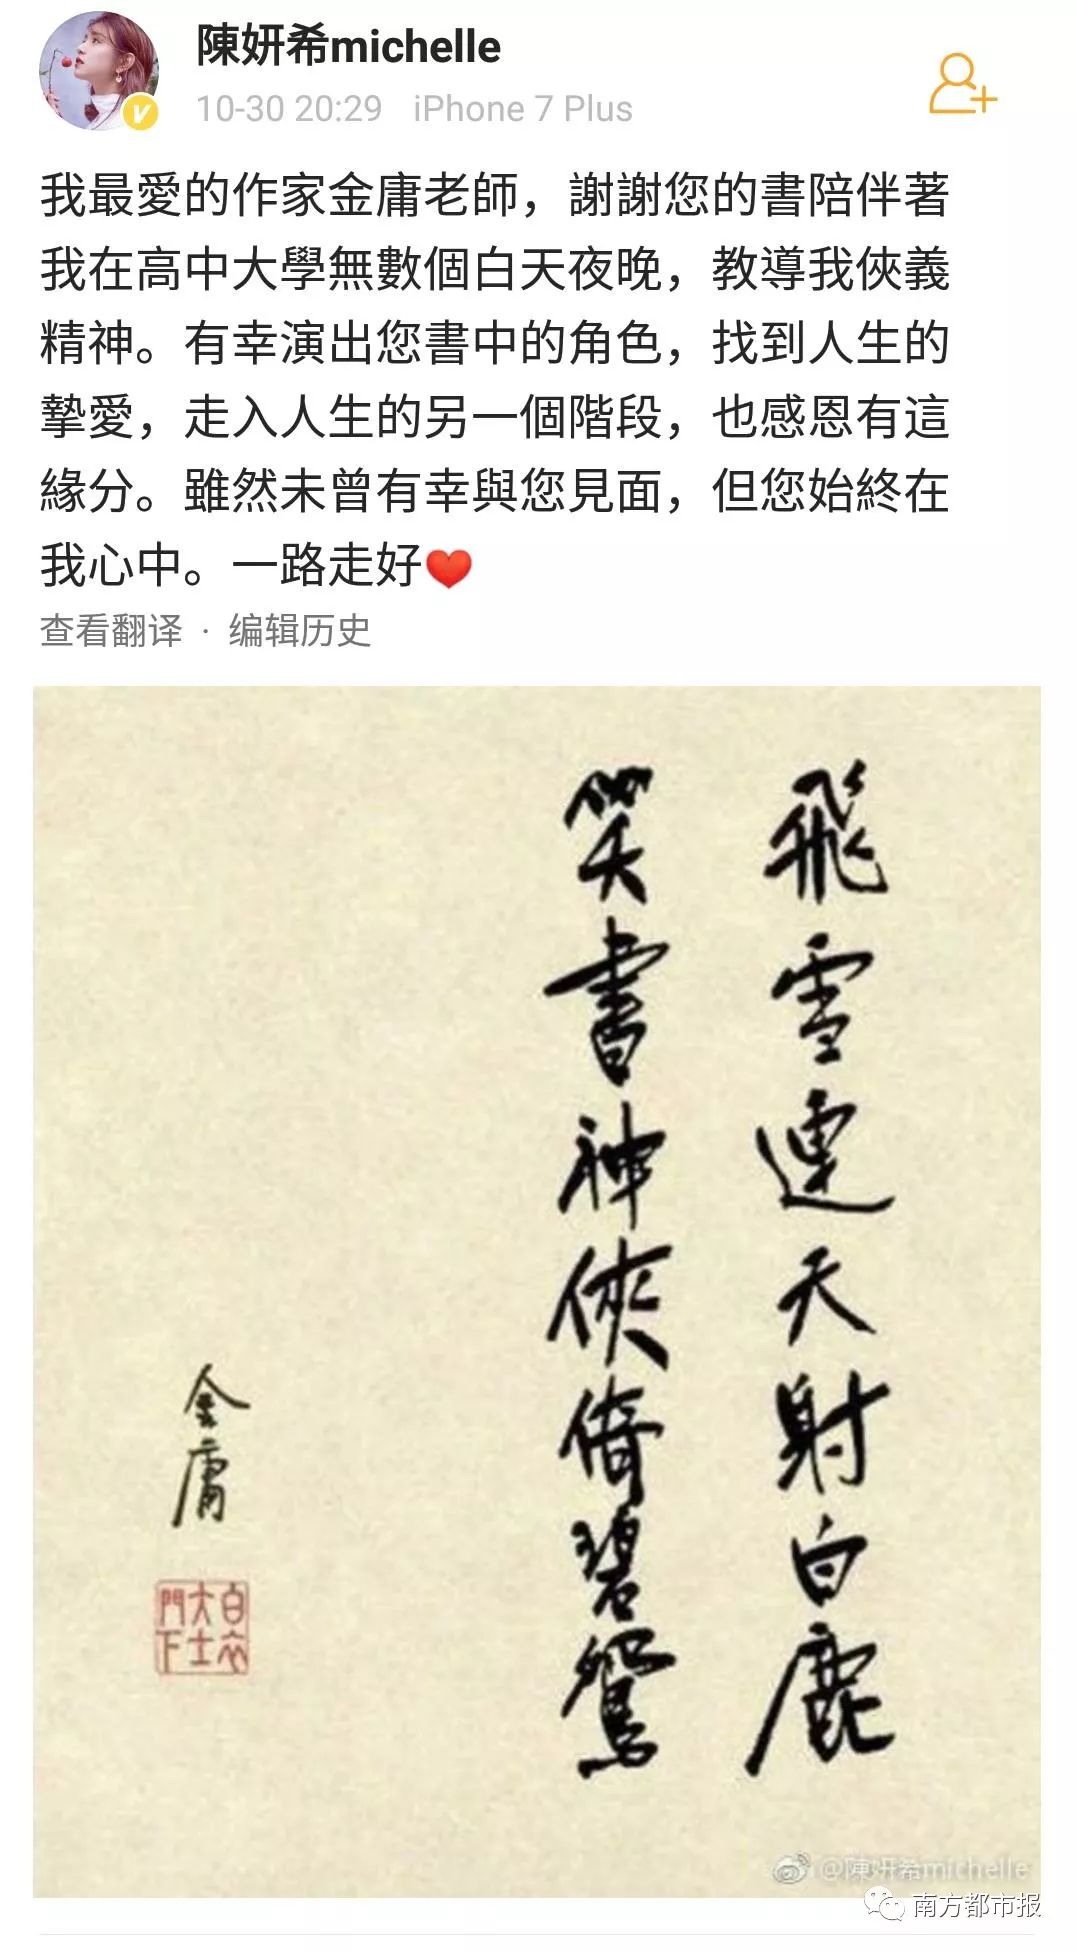 陳妍希michelle
10-30 20:29 iPhone 7 Plus
我最愛的作家金庸老師，謝謝您的書陪伴著
我在高中大學無數個白天夜晚，教導我俠義
精神。有幸演出您書中的角色，找到人生的
摯愛，走入人生的另一個階段，也感恩有這
緣分。雖然未曾有幸與您見面，但您始終在
我心中。一路走好❤
查看翻译 · 编辑历史
飛雪連天射白鹿
笑書神俠倚碧鴛
金庸
白衣
大士
門下
@陳妍希michelle
南方都市报